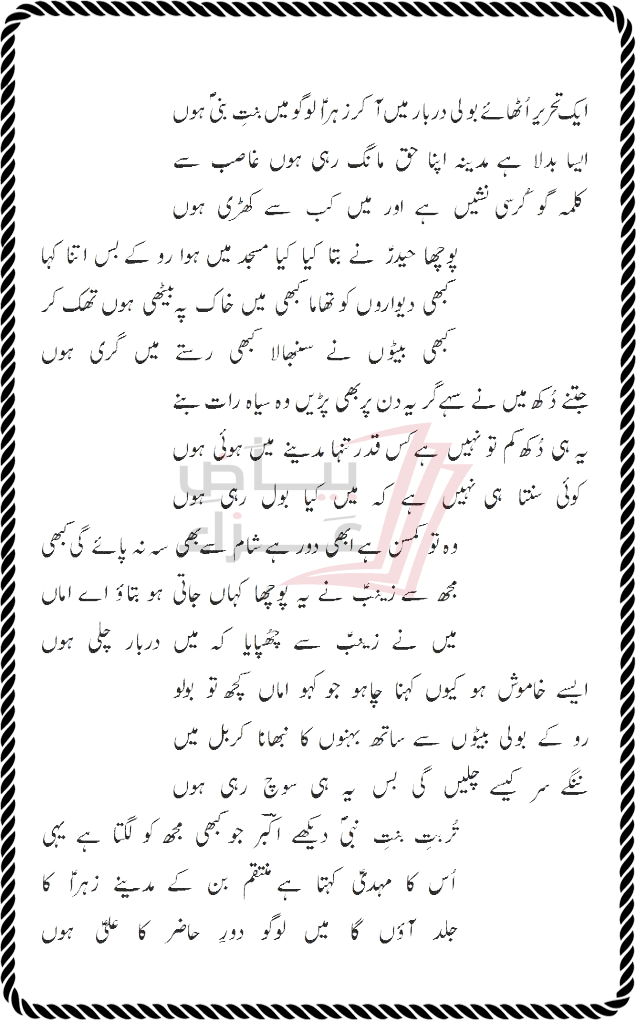 ایک تحریر اُٹھائے بولی دربار میں آ کر زہراؑ لوگو میں بنتِ نبیؐ ہوں
ایسا بدلا ہے مدینہ اپنا حق مانگ رہی ہوں غاصب سے
کلمہ گو کُرسی نشیں ہے اور میں کب سے کھڑی ہوں
پوچھا حیدرؑ نے بتا کیا کیا مسجد میں ہوا رو کے بس اتنا کہا
کبھی دیواروں کو تھاما کبھی میں خاک پہ بیٹھی ہوں تھک کر
کبھی بیٹوں نے سنبھالا کبھی رستے میں گری ہوں
جتنے دُکھ میں نے سہے گر یہ دن پر بھی پڑیں وہ سیاہ رات بنے
یہ ہی دُکھ کم تو نہیں ہے کس قدر تنہا مدینے میں ہوئی ہوں
کوئی سنتا ہی نہیں ہے کہ میں کیا بول رہی ہوں
وہ تو کمسن ہے ابھی دور ہے شام سے بھی سہ نہ پائے گی کبھی
مجھ سے زینبؑ نے یہ پوچھا کہاں جاتی ہو بتاؤ اے اماں
میں نے زینبؑ سے چھُپایا کہ میں دربار چلی ہوں
ایسے خاموش ہو کیوں کہنا چاہو جو کہو اماں کچھ تو بولو
رو کے بولی بیٹوں سے ساتھ بہنوں کا نبھانا کربل میں
ننگے سر کیسے چلیں گی بس یہ ہی سوچ رہی ہوں
تُربتِ بنتِ نبیؐ دیکھے اکبرؔ جو کبھی مجھ کو لگتا ہے یہی
اُس کا مہدیؑ کہتا ہے منتقم بن کے مدینے زہراؑ کا
جلد آؤں گا میں لوگو دورِ حاضر کا علیؑ ہوں
بیاض
عزاء